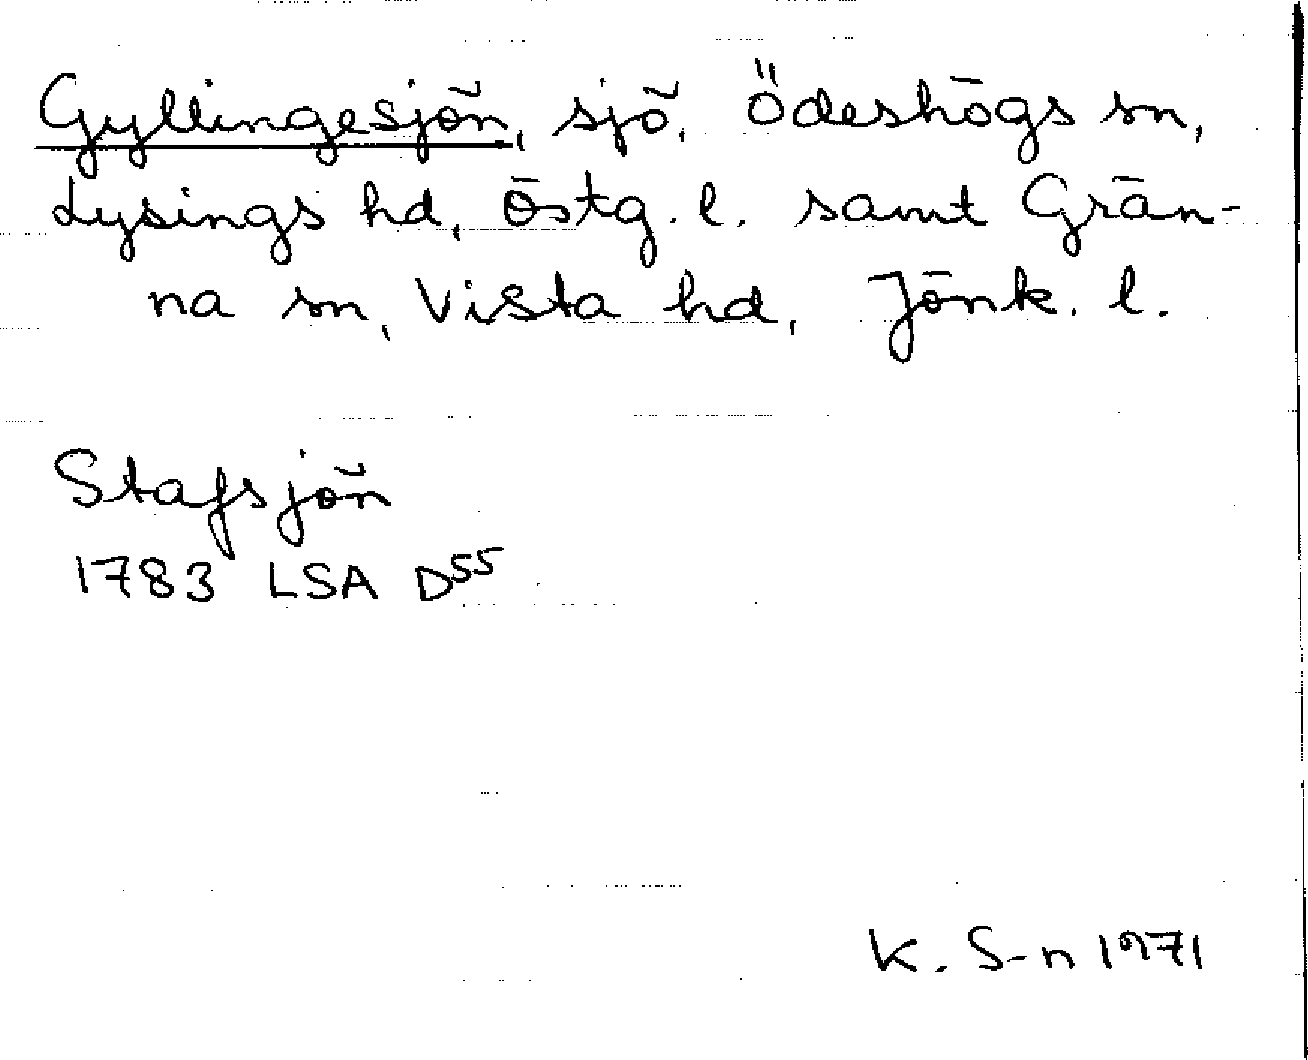 Gyllingesjön, sjö, Ödeshögs sn,
Lysings hd, Östg. l. samt Grän-
na sn, Vista hd, Jönk. l.
Stafsjön
1783 LSA D55
K. S-n 1971